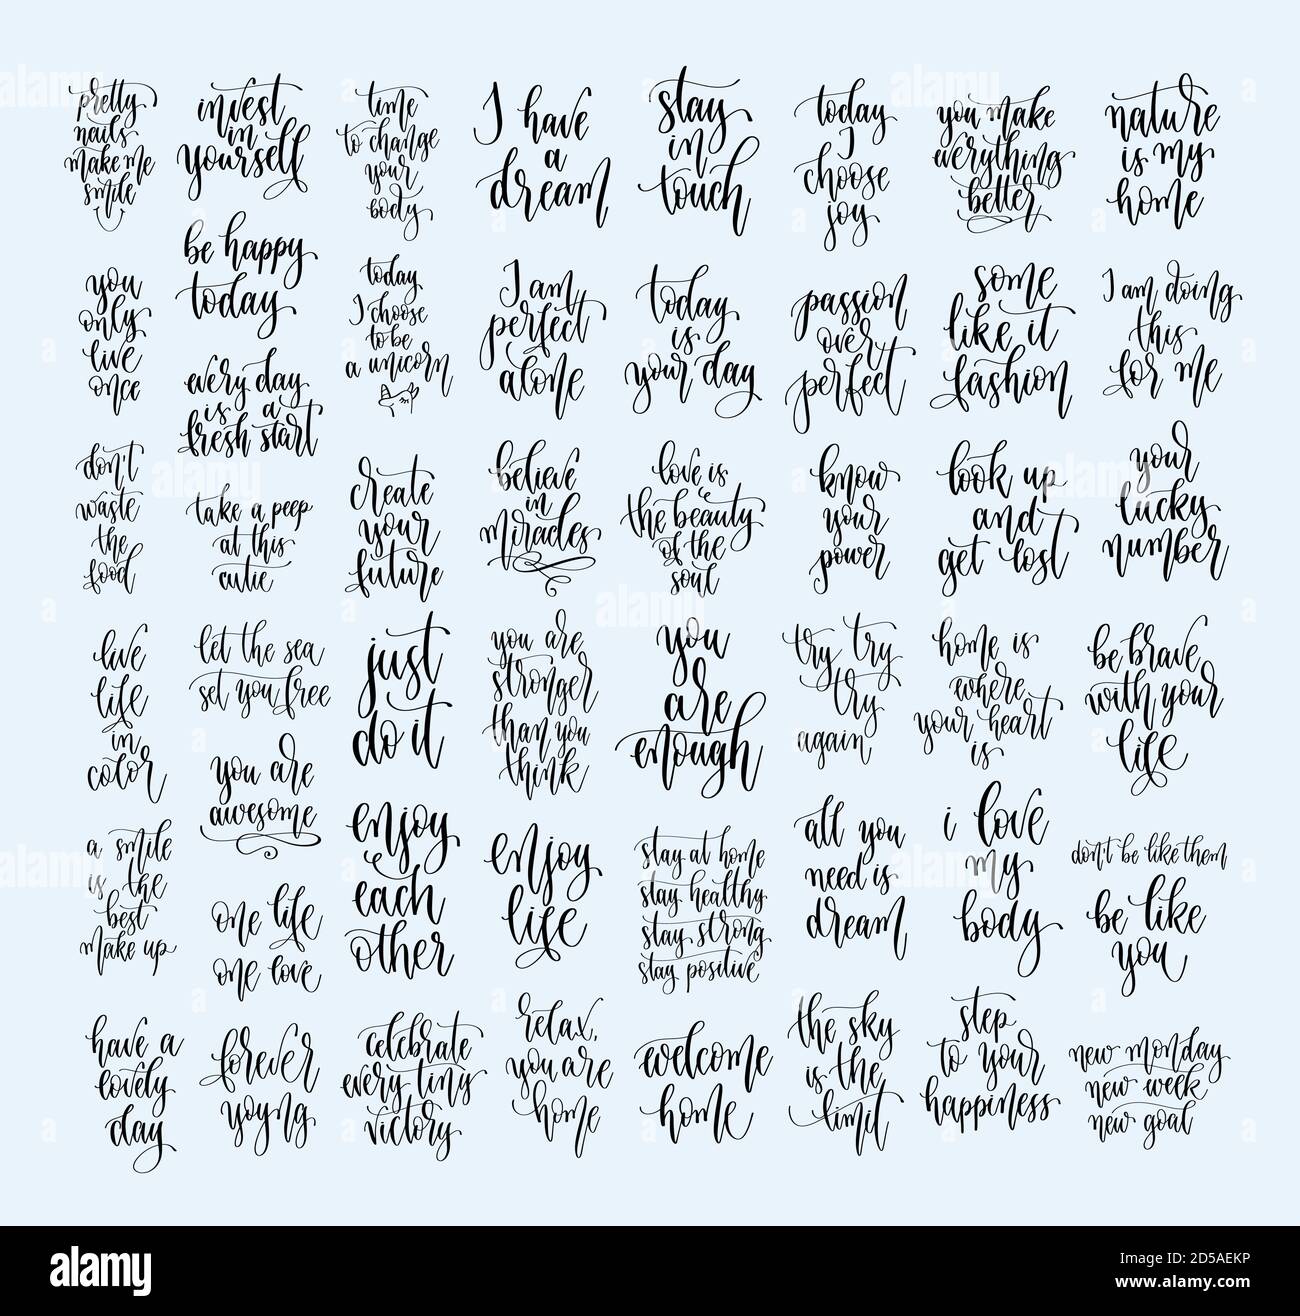 pretty
nails
make me
smile
you
only
live
once
don't
waste
the
food
live
life
in
color
a smile
is the
best
make up
have a
lovely
day
invest
in
yourself
be happy
today
every day
is a
fresh start
take a peep
at this
cutie
let the sea
set you free
you are
awesome
one life
one love
forever
yoyng
time
to change
your
body
today
I choose
to be
a unicorn
create
your
future
just
do it
enjoy
each
other
celebrate
every tiny
victory
I have
a
dream
I am
perfect
alone
believe
in
miracles
you are
stronger
than you
think
enjoy
life
relax,
you are
home
stay
in
touch
today
is
your day
love is
the beauty
of the
soul
you
are
enough
stay at home
stay healthy
stay strong
stay positive
welcome
home
today
I
choose
joy
passion
over
perfect
know
your
power
try try
try
again
all you
need is
dream
the sky
is the
limit
you make
everything
better
some
like it
fashion
look up
and
get lost
home is
where
your heart
is
i love
my
body
step
to your
happiness
nature
is my
home
I am doing
this
for me
your
lucky
number
be brave
with your
life
don't be like them
be like
you
new monday
new week
new goal
alamy
Image ID: 2D5AEKP
www.alamy.com